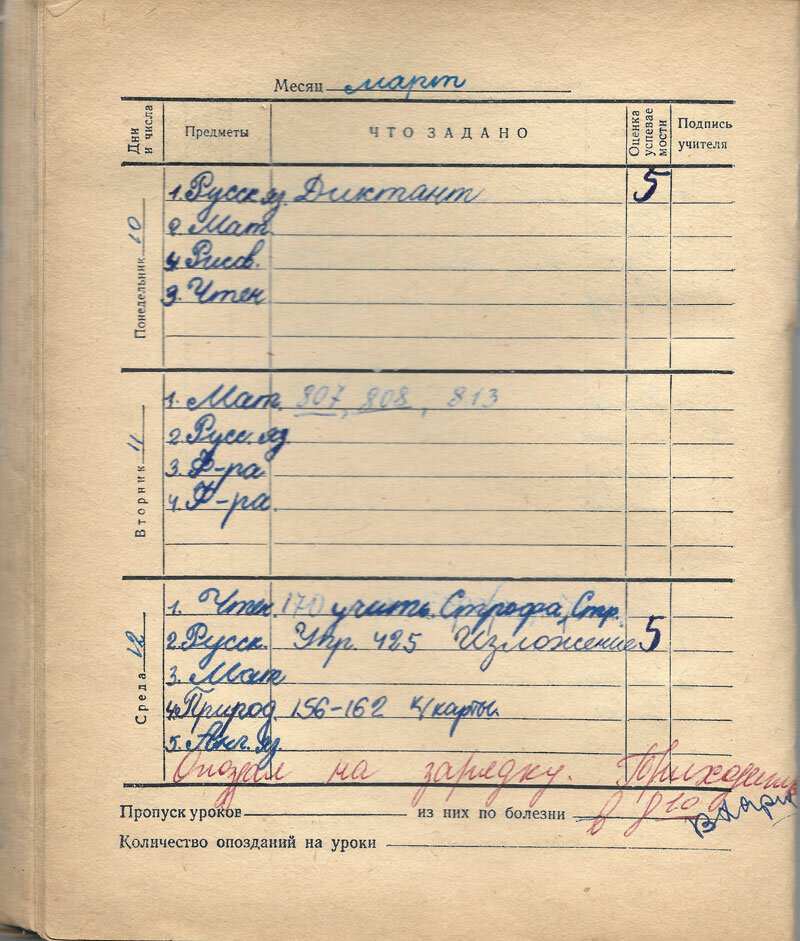 Месяц март
Дни и числа Предметы ЧТО ЗАДАНО Оценка успевае мости Подпись учителя
Понедельник 10
1. Русск яз. Диктант 5
2 Мат.
4 Рисов.
3. Чтен
Вторник 11
1. Мат. 807, 808, 813
2 Русс. яз
3. Ф-ра
4. Ф-ра.
Среда 12
1. Чтен. 170 учить. Строфа, Стр.
2 Русск. Упр. 425 Изложение 5
3. Мат
4. Природ. 156-162 к/карты.
5. Анг. яз.
Опоздал на зарядку. Приходить
Пропуск уроков из них по болезни в 8 10
Количество опозданий на уроки